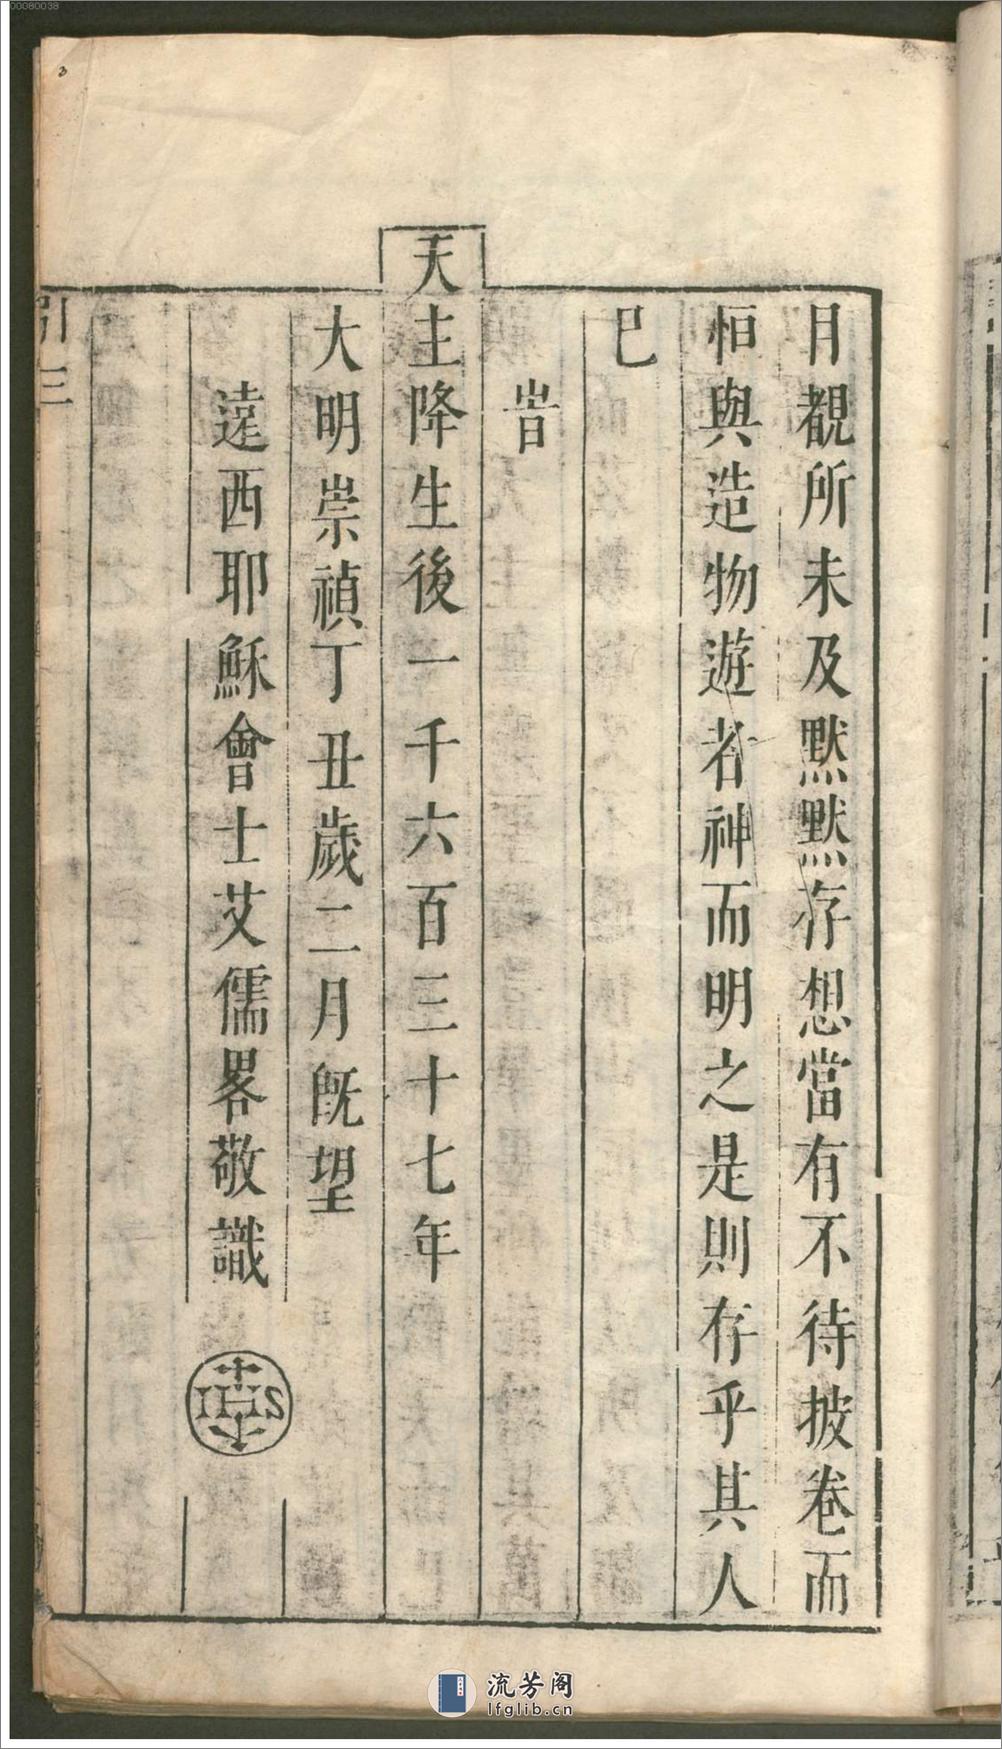 00080038
3
目覩所未及默默存想當有不待披卷而
恒與造物遊者神而明之是則存乎其人
已
旹
天主降生後一千六百三十七年
大明崇禎丁丑歲二月旣望
遠西耶穌會士艾儒畧敬識
IHS
引
三
流芳阁
lfglib.cn